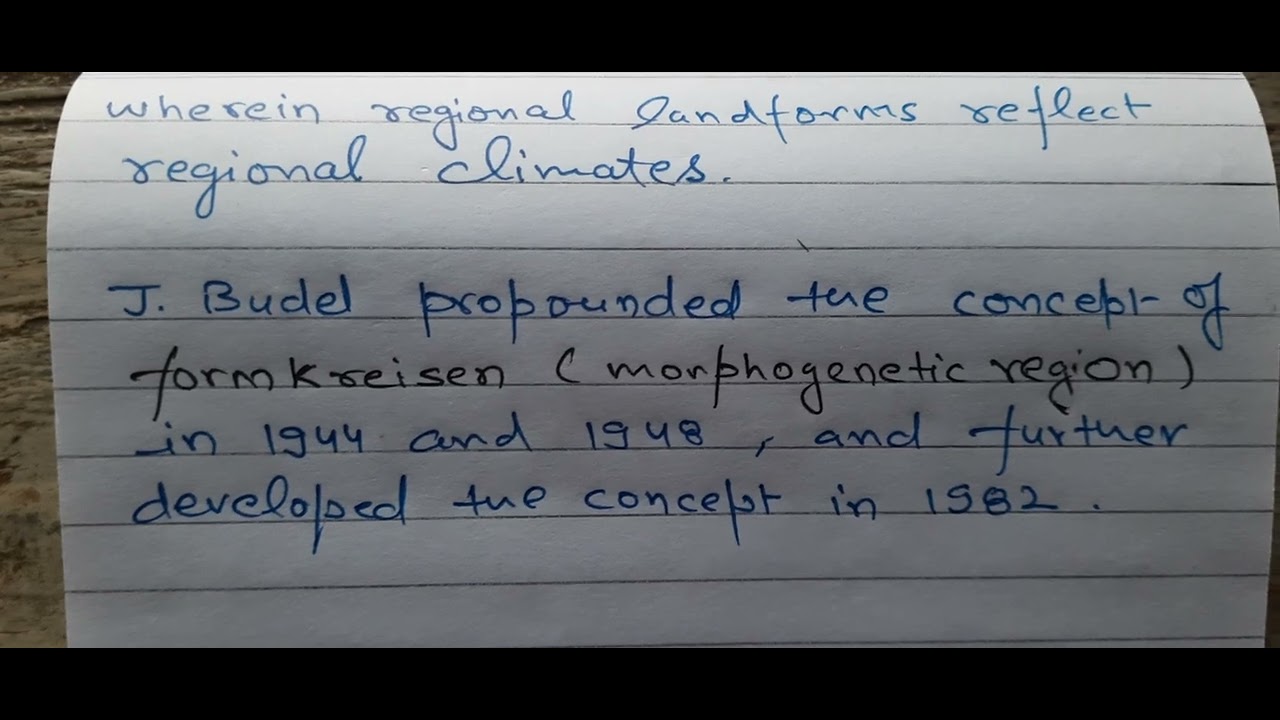 wherein regional landforms reflect
regional climates.
J. Budel propounded the concept of
formkreisen (morphogenetic region)
in 1944 and 1948, and further
developed the concept in 1982.